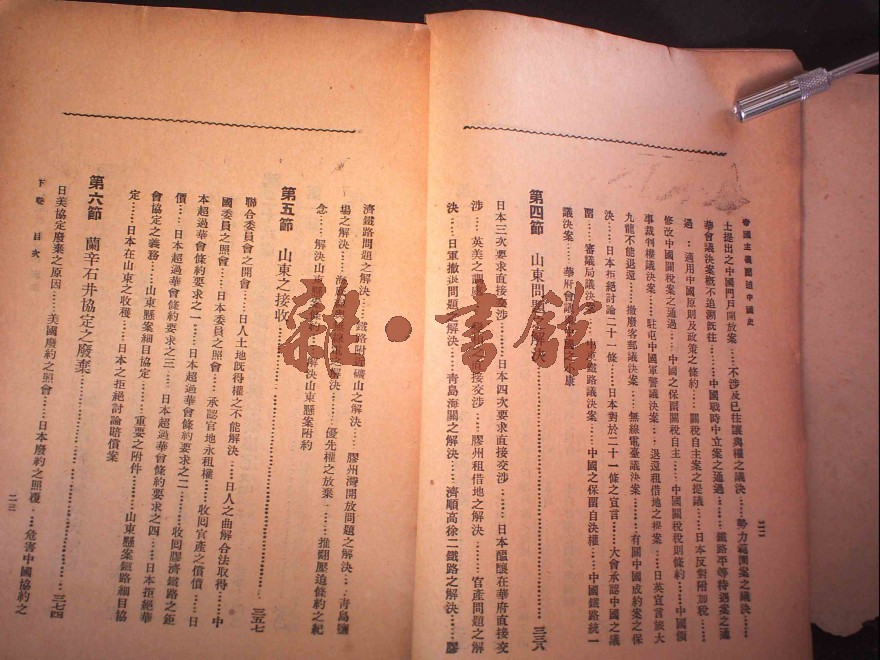 帝國主義壓迫中國史
二二
士提出之中國門戶開放案……不涉及已往讓與權之議決……勢力範圍案之議決……
華會議決案概不追溯既往……中國戰時中立案之通過……鐵路平等待遇案之通
過……適用中國原則及政策之條約……關稅自主案之提議……日本反對附加稅……
修改中國關稅案之通過……中國之保留關稅自主……中國關稅稅則條約……中國領
事裁判權議決案……駐屯中國軍警議決案……退還租借地之提案……日英宣言談大
九龍不能退還……撤廢客郵議決案……無線電臺議決案……有關中國成約案之保
決……日本拒絕討論二十一條……日本對於二十一條之宣言……大會承認中國之議
留……審議局議決案……中東鐵路議決案……中國之保留自決權……中國鐵路統一
議決案……華府會議與中國之小康
第四節 山東問題之解決……三三六
日本三次要求直接交涉……日本四次要求直接交涉……日本醞釀在華府直接交
涉……英美之調……直接交涉……膠州租借地之解決……官產問題之解
決……日軍撤退問題之解決……青島海關之解決……濟順高徐二鐵路之解決……膠
濟鐵路問題之解決……鐵路附近礦山之解決……膠州灣開放問題之解決……青島鹽
場之解決……海底電線……之解決……優先權之放棄……推翻壓迫條約之紀
念……解決山東懸案條約……解決山東懸案附約
第五節 山東之接收……三五七
聯合委員會之開會……日人土地既得權之不能解決……日人之曲解合法取得……中
國委員之照會……日本委員之照會……承認官地永租權……收回官產之償價……日
本超過華會條約要求之一……日本超過華會條約要求之二……收回膠濟鐵路之鉅
價……日本超過華會條約要求之三……日本超過華會條約要求之四……日本拒絕華
會協定之義務……山東懸案細目協定……重要之附件……山東懸案鐵路細目協
定……日本在山東之收穫……日本之拒絕討論賠償案
第六節 蘭辛石井協定之廢棄……三七四
日美協定廢棄之原因……美國廢約之照會……日本廢約之照覆……危害中國協約之
下卷 目次
二三
雜·書館